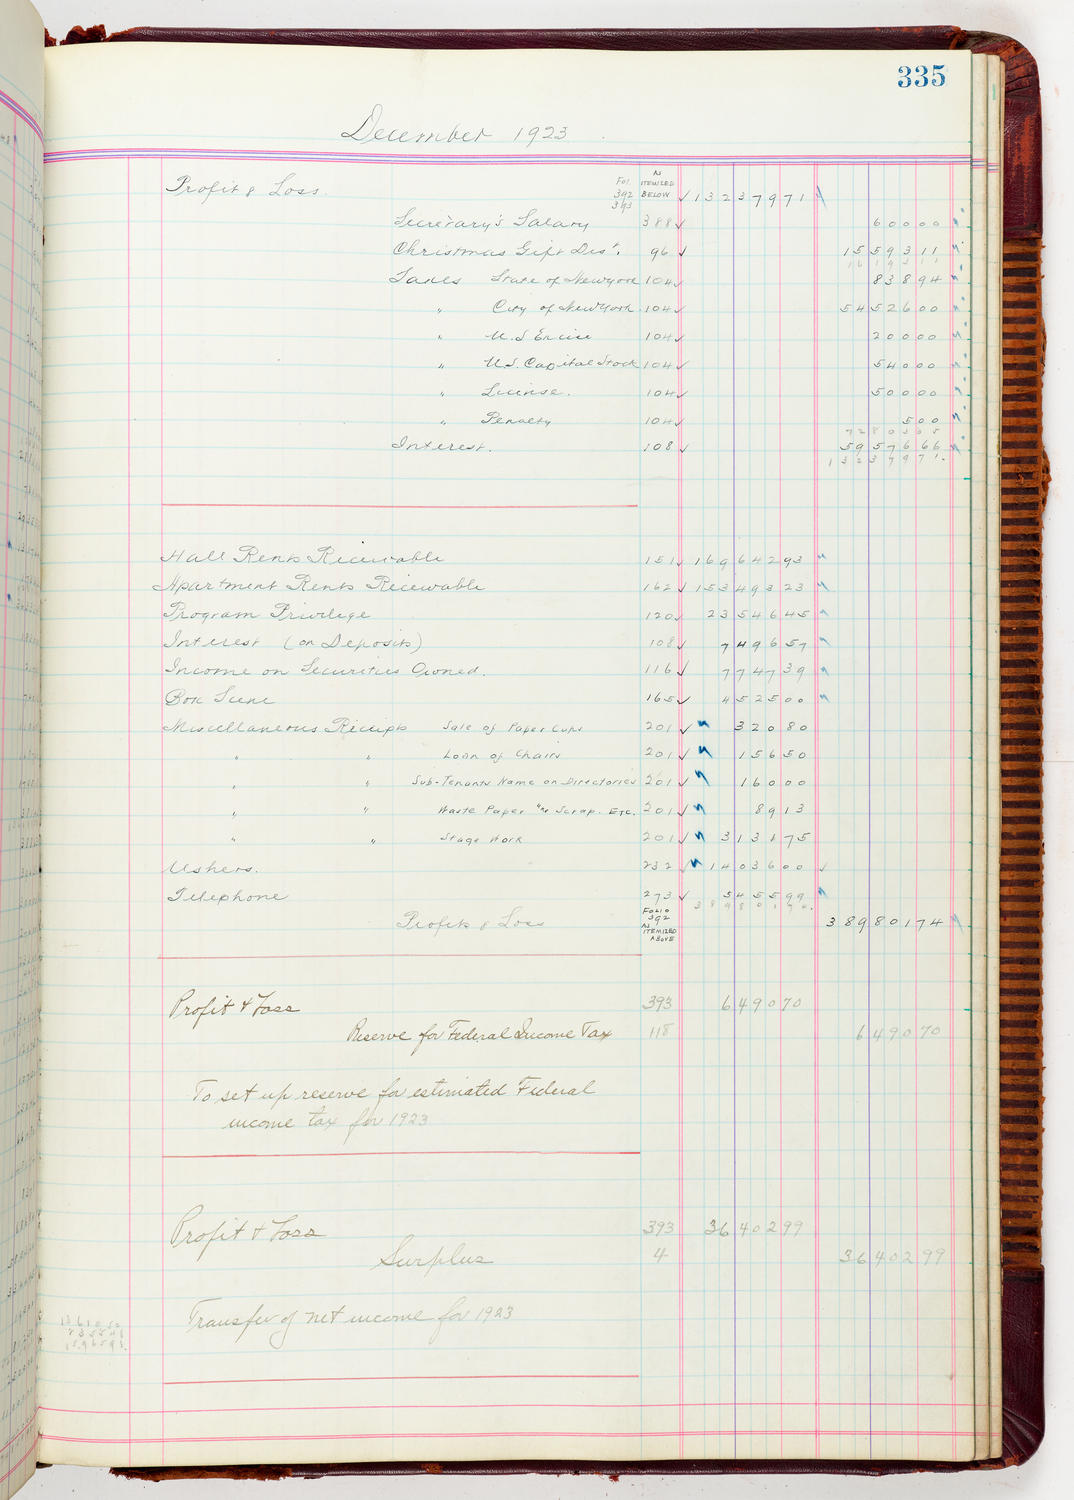 335
December 1923
Profit & Loss. Fol. 392 393 AS ITEMIZED BELOW ✓ 13237971
Secretary's Salary 388 ✓ 60000
Christmas Gift Dist. 96 ✓ 1559311
1619311
Taxes State of New York 104 ✓ 83894
" City of New York 104 ✓ 5452600
" U.S. Excise 104 ✓ 20000
" U.S. Capital Stock 104 ✓ 54000
" License. 104 ✓ 50000
" Penalty 104 ✓ 500
7280305
Interest. 108 ✓ 5957666
13237971.
Hall Rents Receivable 151 ✓ 16964293
Apartment Rents Receivable 162 ✓ 15349323
Program Privilege 120 ✓ 2354645
Interest (on Deposits) 108 ✓ 749657
Income on Securities Owned. 116 ✓ 774739
Box Sene 165 ✓ 452500
Miscellaneous Receipts Sale of Paper Cups 201 ✓ 32080
" " Loan of Chairs 201 ✓ 15650
" " Sub-Tenants Name on Directories 201 ✓ 16000
" " Waste Paper "" Scrap. ETC. 201 ✓ 8913
" " Stage Work 201 ✓ 313175
Ushers. 232 ✓ 1403600 ✓
Telephone 273 ✓ 545599
38980174.
Profit & Loss FOLIO 392 AS ITEMIZED ABOVE 38980174
Profit & Loss 393 649070
Reserve for Federal Income Tax 118 649070
To set up reserve for estimated Federal
income tax for 1923
Profit & Loss 393 3640299
Surplus 4 3640299
Transfer of net income for 1923